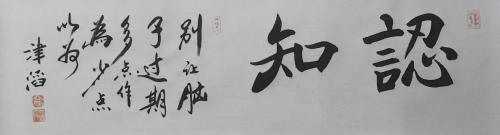 認知
别让脑
子过期
多点作
為少点
以为
津滔